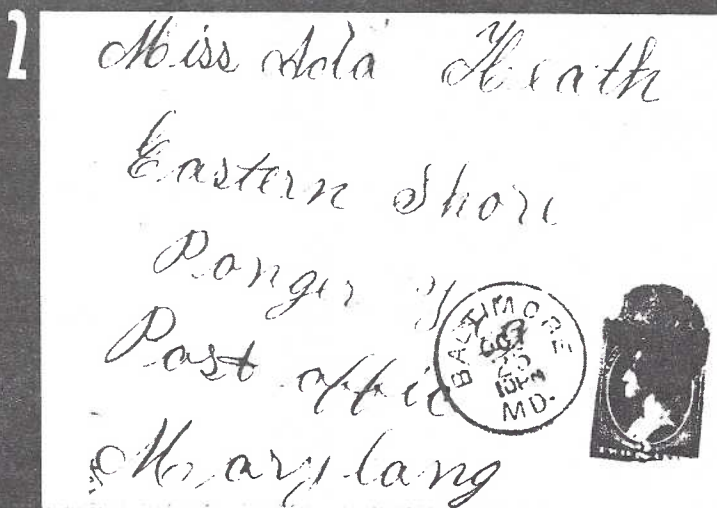 2
Miss Ada Heath
Eastern Shore
Ponger
Post offic
Marylang
BALTIMORE
OCT
25
MD.